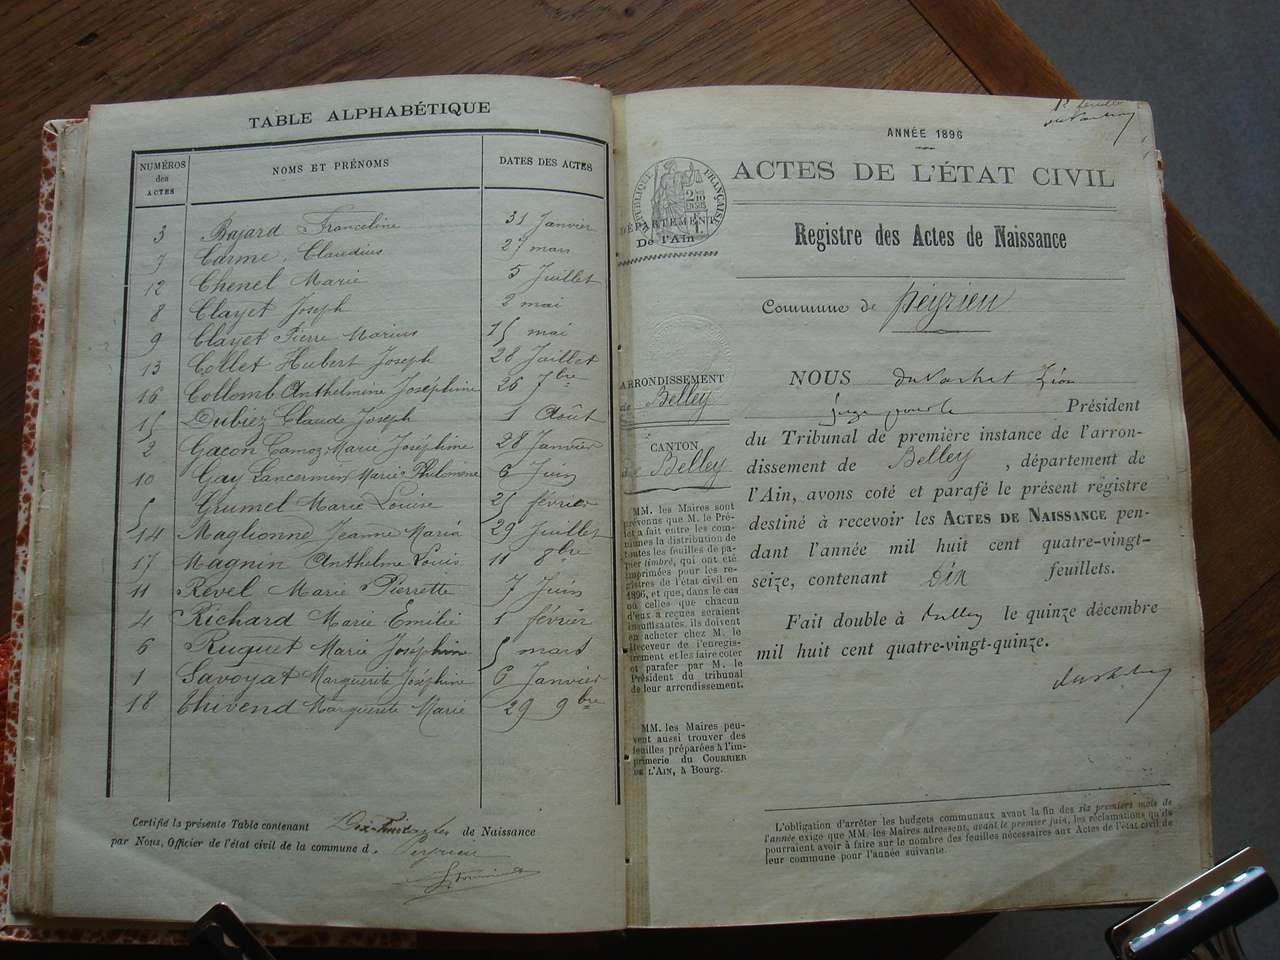 TABLE ALPHABÉTIQUE
NUMÉROS des ACTES NOMS ET PRÉNOMS DATES DES ACTES
3 Bajard Franceline 31 Janvier
7 Carme Claudius 27 mars
12 Chenel Marie 5 Juillet
8 Clayet Joseph 2 mai
9 Clayet Pierre Marius 15 mai
13 Collet Hubert Joseph 28 Juillet
16 Collomb Anthelmine Joséphine 26 7bre
15 Dubiez Claude Joseph 1 Août
2 Gacon Camoz Marie Joséphine 28 Janvier
10 Gay Lancermin Marie Philomène 6 Juin
5 Grumel Marie Louise 25 février
14 Maglionne Jeanne Maria 29 Juillet
17 Magnin Anthelme Louis 11 8bre
11 Revel Marie Pierrette 7 Juin
4 Richard Marie Emilie 1 février
6 Ruguet Marie Joséphine 5 mars
1 Savoyat Marguerite Joséphine 6 Janvier
18 Thivend Marguerite Marie 29 9bre
Certifié la présente Table contenant Dix-huit actes de Naissance
par Nous, Officier de l'état civil de la commune d. Peyrieu
1e feuille
ANNÉE 1896
ACTES DE L'ÉTAT CIVIL
RÉPUBLIQUE FRANÇAISE
DÉPARTEMENT
De l'Ain
Registre des Actes de Naissance
Commune de Peyrieu
ARRONDISSEMENT
de Belley
CANTON
de Belley
MM. les Maires sont
prévenus que M. le Pré-
fet a fait entre les com-
munes la distribution de
toutes les feuilles de pa-
pier timbré, qui ont été
imprimées pour les re-
gistres de l'état civil en
1896, et que, dans le cas
où celles que chacun
d'eux a reçues seraient
insuffisantes, ils doivent
en acheter chez M. le
Receveur de l'enregis-
trement et les faire coter
et parafer par M. le
Président du tribunal
de leur arrondissement.
MM. les Maires peu-
vent aussi trouver des
feuilles préparées à l'im-
primerie du COURRIER
DE L'AIN, à Bourg.
NOUS Léon
juge pour le Président
du Tribunal de première instance de l'arron-
dissement de Belley, département de
l'Ain, avons coté et parafé le présent régistre
destiné à recevoir les ACTES DE NAISSANCE pen-
dant l'année mil huit cent quatre-vingt-
seize, contenant Dix feuillets.
Fait double à Belley le quinze décembre
mil huit cent quatre-vingt-quinze.
L'obligation d'arrêter les budgets communaux avant la fin des six premiers mois de
l'année exige que MM. les Maires adressent, avant le premier juin, les réclamations qu'ils
pourraient avoir à faire sur le nombre des feuilles nécessaires aux Actes de l'état civil de
leur commune pour l'année suivante.